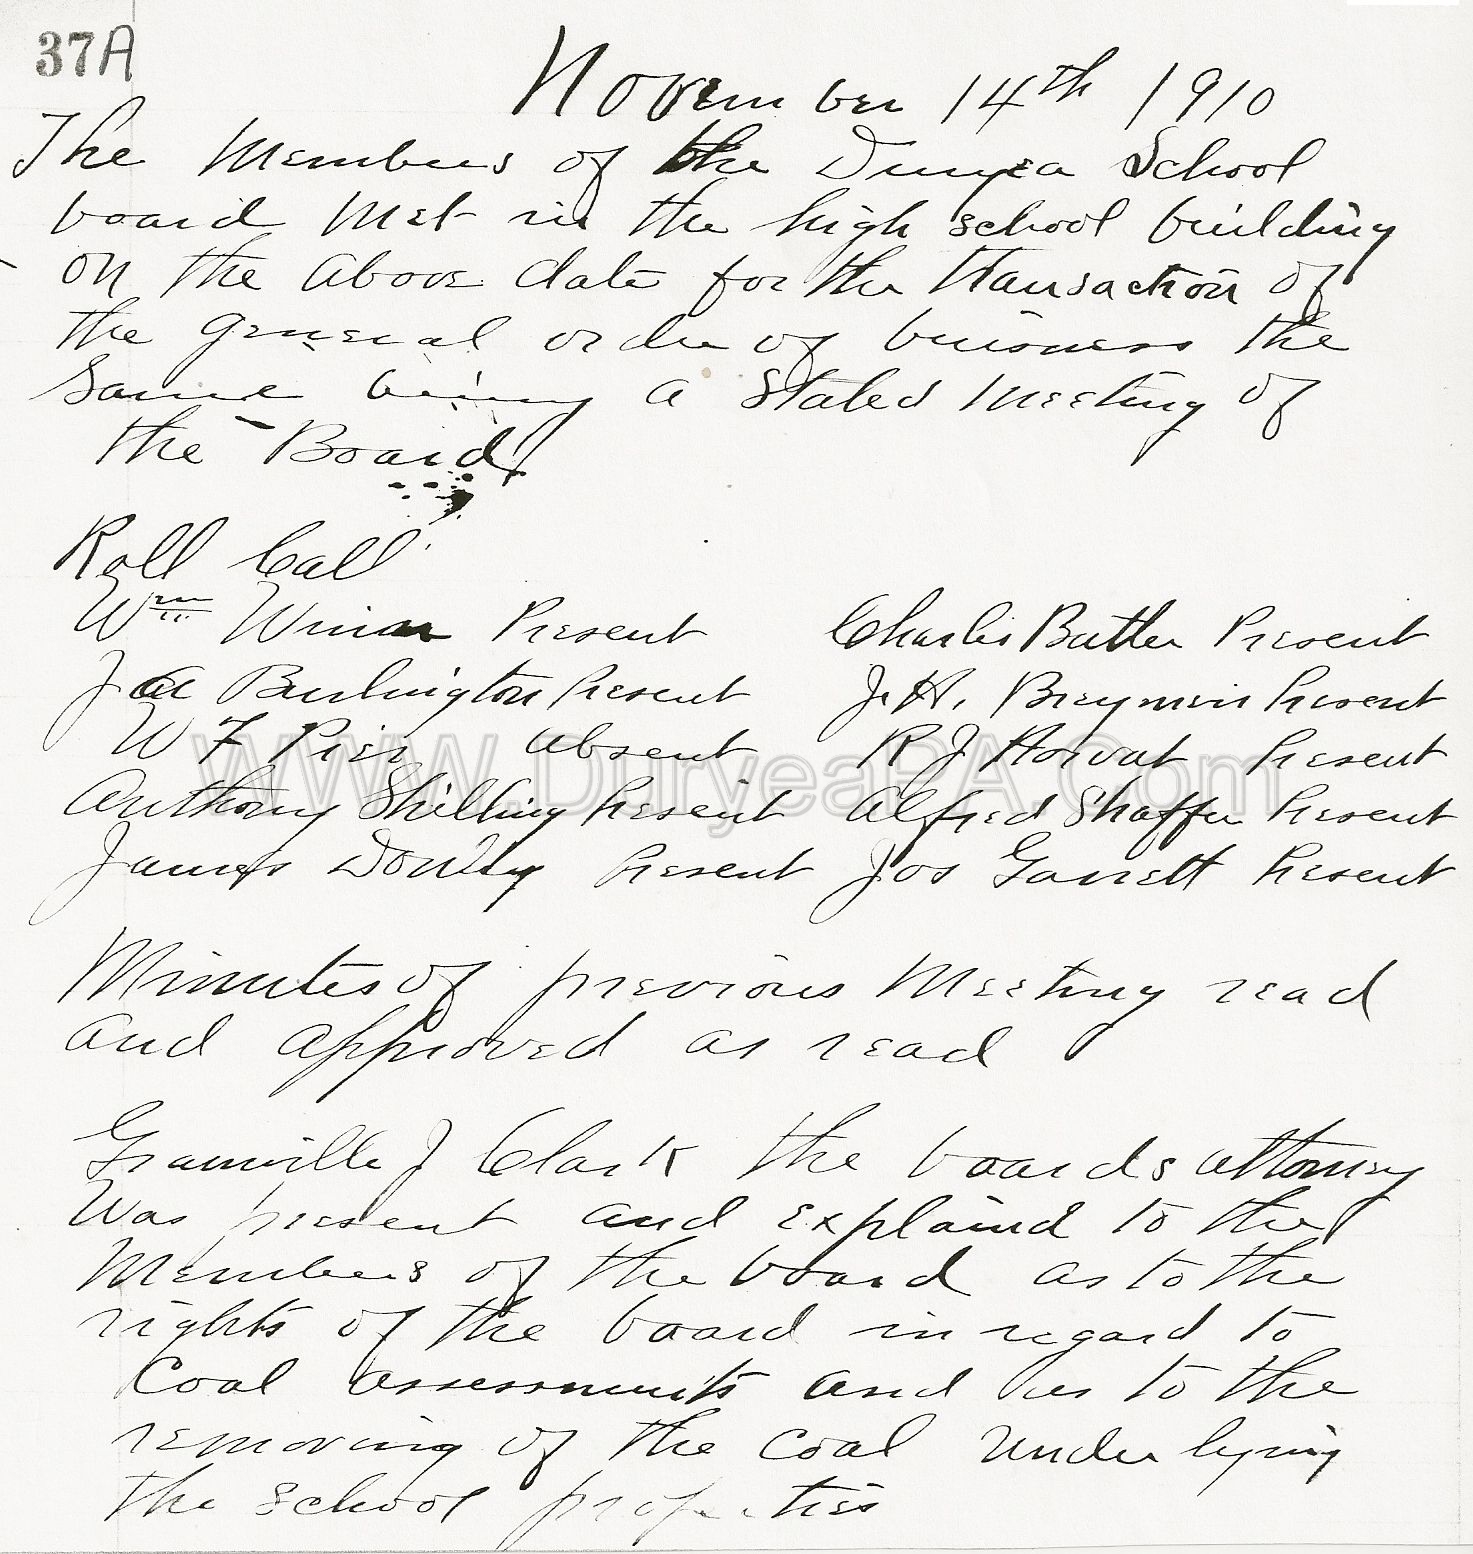 37A
November 14th 1910
The Members of the Duryea School
board Met in the high school building
on the above date for the transaction of
the general order of business the
Same being a Stated Meeting of
the Board
Roll Call
Wm Present Charles Butler Present
J A Burlington Present J. H. Present
W F Pier absent R J Horvat Present
Anthony Shilling Present Alfred Shaffer Present
James Present Jos Garrett Present
WWW.DuryeaPA.Com
Minutes of previous Meeting read
and approved as read
Granville J Clark the boards attorney
Was present and explaind to the
Members of the board as to the
rights of the board in regard to
Coal assessments and as to the
removing of the coal underlying
the school properties